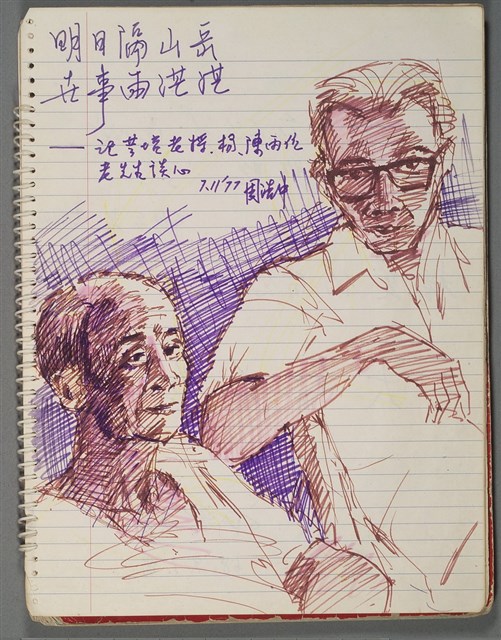 明日隔山岳
世事兩茫茫
——記芬培老楊、楊、陳兩位
老先生談心
7.11/77 周浩中